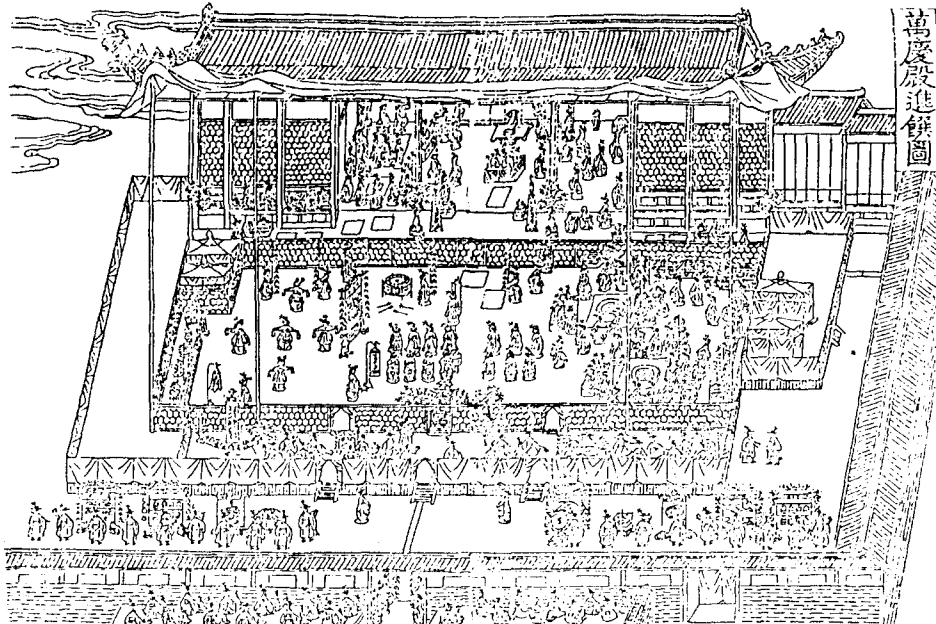 萬慶殿進饌圖